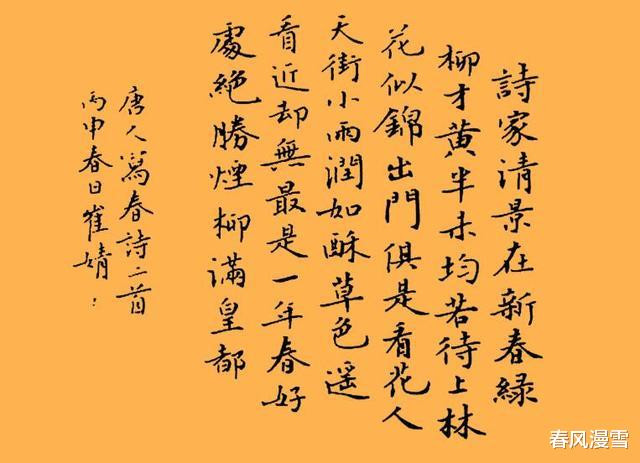 詩家清景在新春緑
柳才黄半未均若待上林
花似錦出門俱是看花人
天街小雨潤如酥草色遥
看近却無最是一年春好
處絶勝煙柳滿皇都
唐人寫春詩二首
丙申春日崔婧
春风漫雪